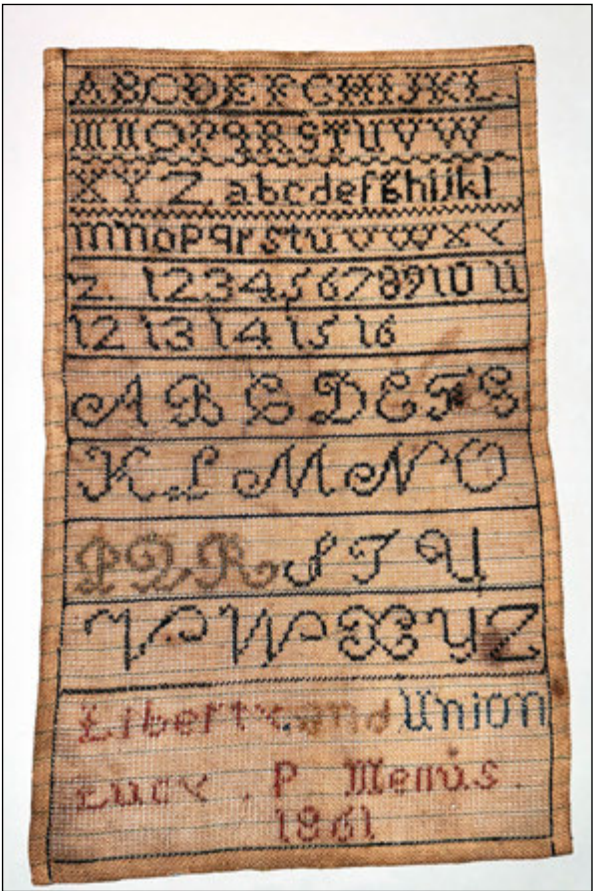 ABCDEFGHIJKL
MNOPQRSTUVW
XYZ abcdefghijkl
mnopqrstuvwxy
z. 1234567891011
12 13 14 15 16
A B C D E F G
K L M N O
P Q R S T U
V W X Y Z
Liberty and Union
Lucy. P Menus.
1861